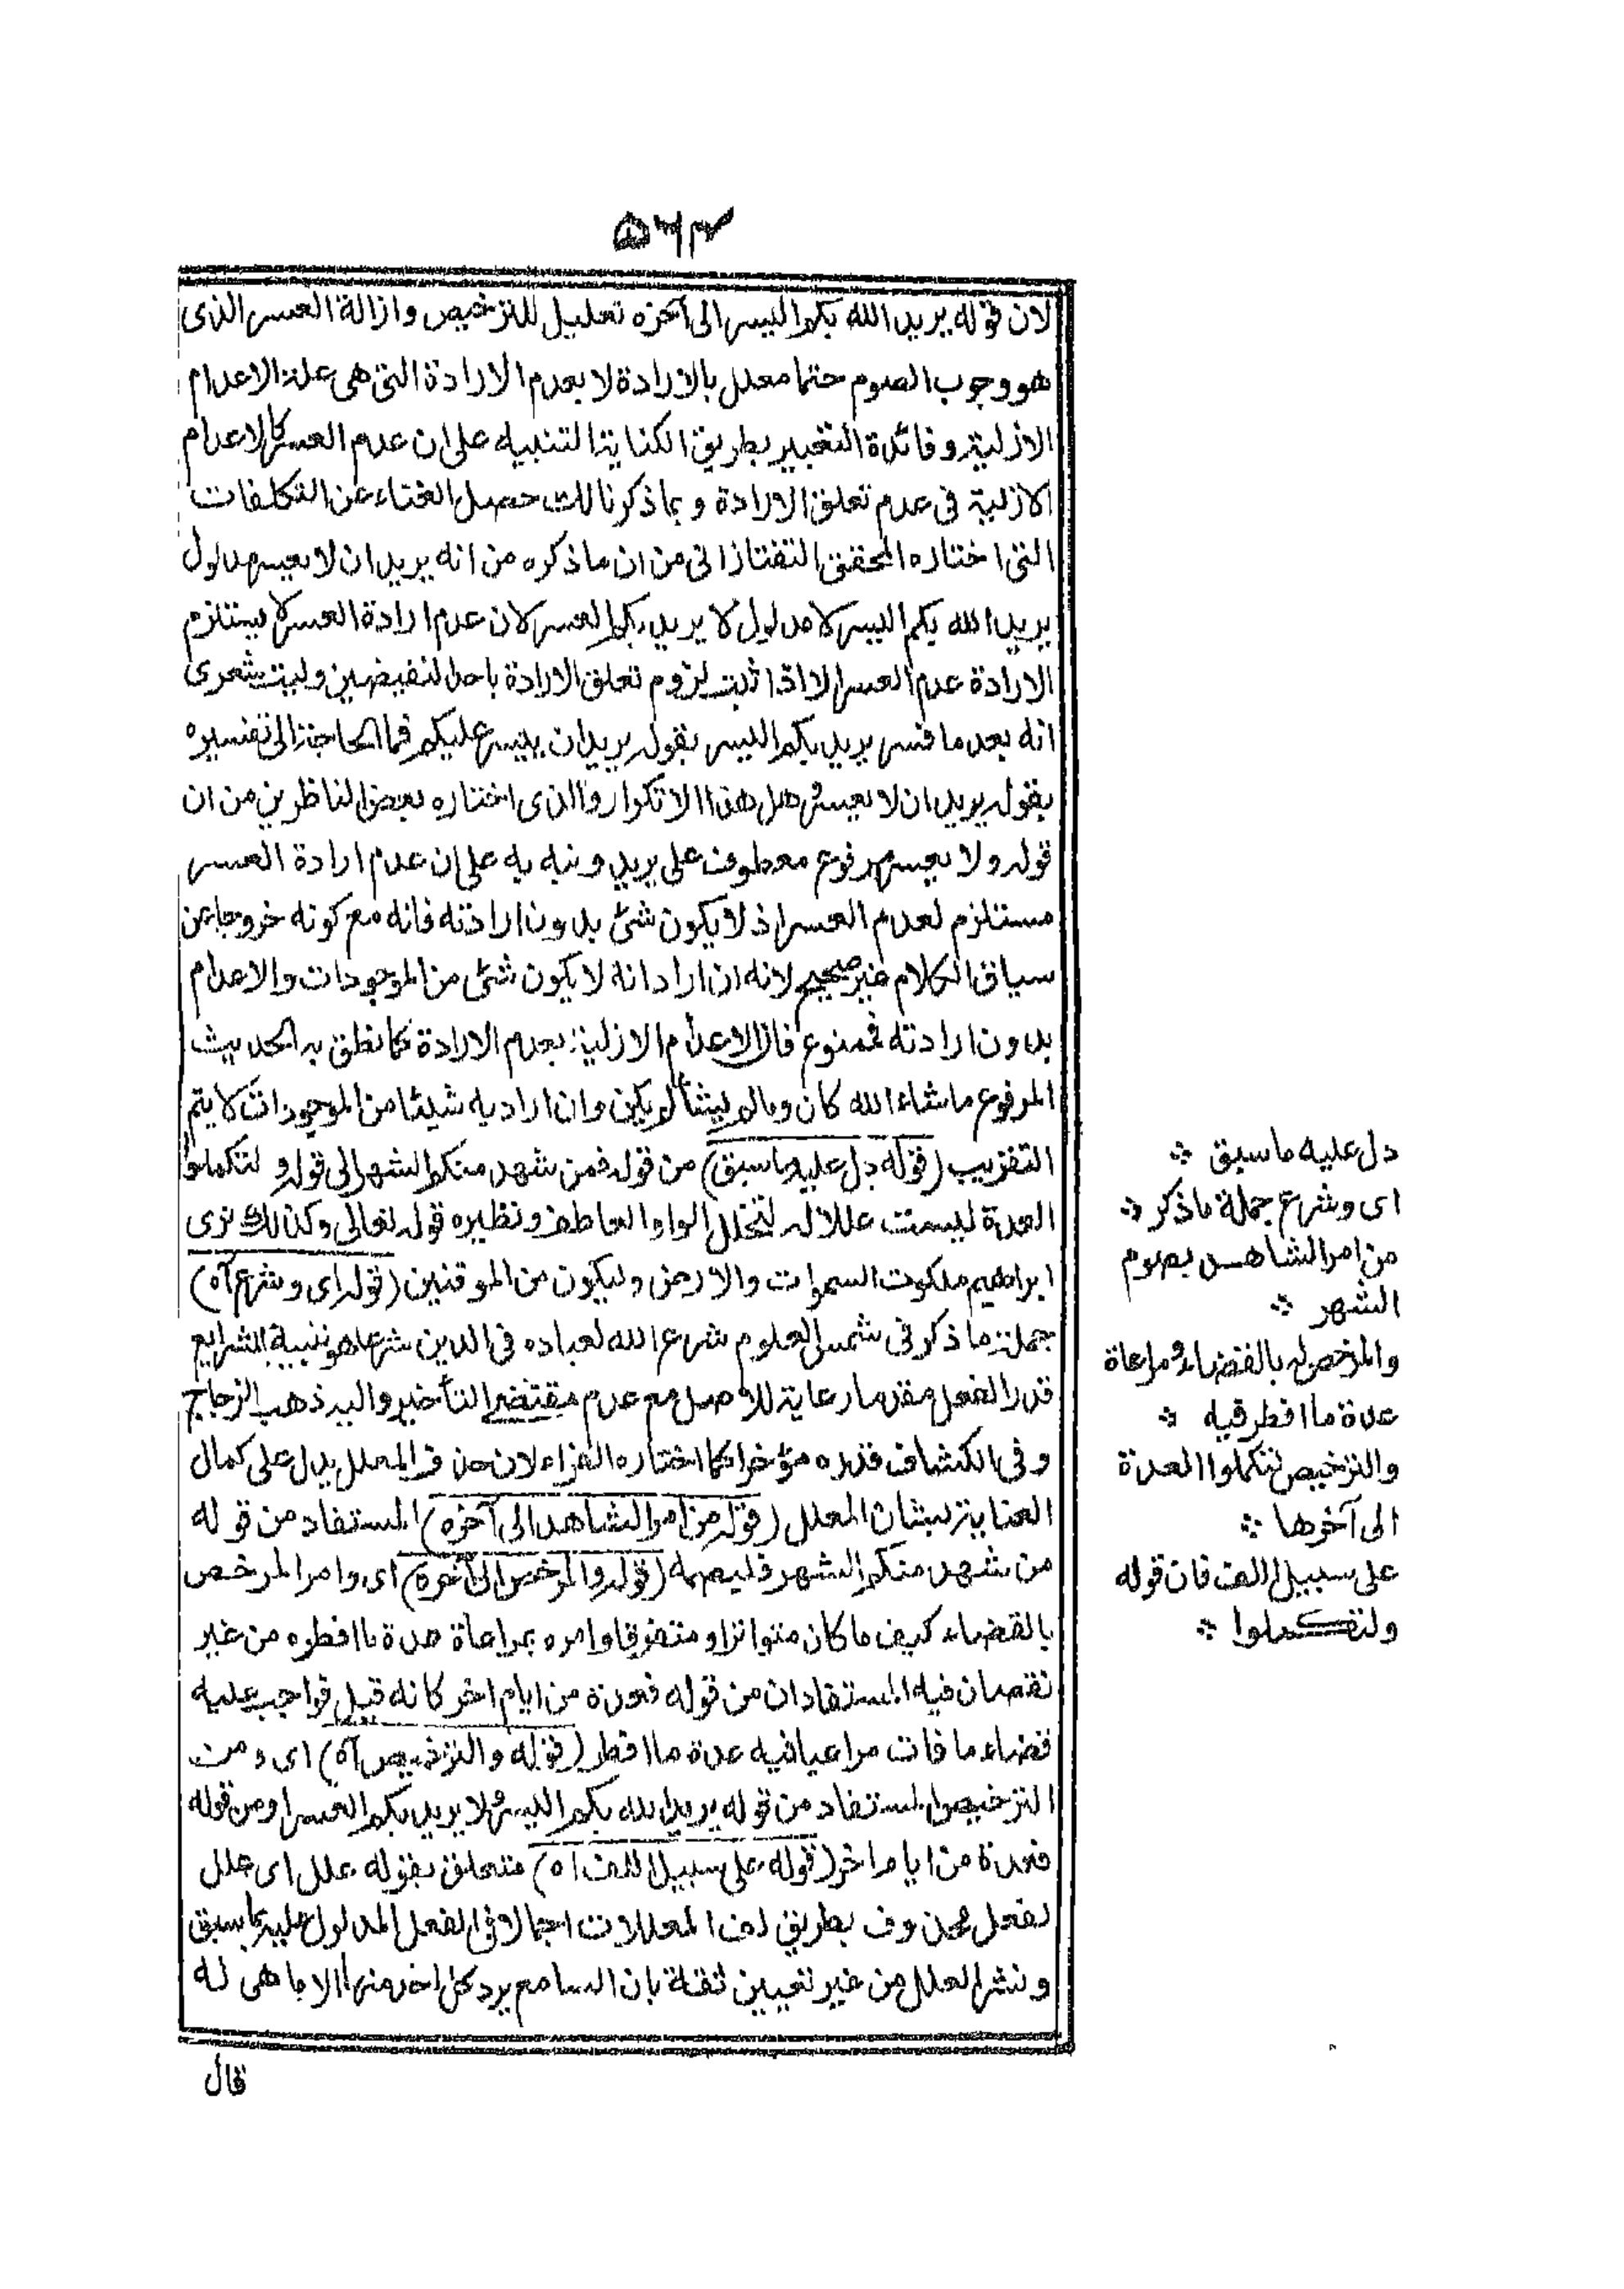 ٥٦٢
لان قوله يريد الله بكم اليسر الى آخره تعليل للترخيص وازالة العسر الذى
هو وجوب الصوم حتما معلل بالارادة لا بعدم الارادة التى هى علة الاعدام
الازلية وفائدة التعبير بطريق الكناية التنبيه على ان عدم العسر كالاعدام
الازلية فى عدم تعلق الارادة وبما ذكرنا لك حصل الغناء عن التكلفات
التى اختاره المحقق التفتازانى من ان ما ذكره من انه يريد ان لا يعسر مدلول
يريد الله بكم اليسر لا مدلول لا يريد بكم العسر لان عدم ارادة العسر لا يستلزم
الارادة عدم العسر الا اذا ثبت لزوم تعلق الارادة باحد النقيضين وليت شعرى
انه بعد ما فسر يريد بكم اليسر بقوله يريد ان ييسر عليكم فما الحاجة الى تفسيره
بقوله يريد ان لا يعسر وهل هذا الا تكرار والذى اختاره بعض الناظرين من ان
قوله ولا يعسر مرفوع معطوف على يريد ونبه به على ان عدم ارادة العسر
مستلزم لعدم العسر اذ لا يكون شئ بدون ارادته فانه مع كونه خروجا عن
سياق الكلام غير صحيح لانه ان اراد انه لا يكون شئ من الموجودات والاعدام
بدون ارادته فممنوع فان الاعدام الازلية بعدم الارادة كما نطق به الحديث
المرفوع ما شاء الله كان وما لم يشأ لم يكن وان اراد به شيئا من الموجودات لا يتم
التقريب (قوله دل عليه ما سبق) من قوله فمن شهد منكم الشهر الى قوله ولتكملوا
العدة ليست عللا له لتخلل الواو العاطفة ونظيره قوله تعالى وكذلك نرى
ابراهيم ملكوت السموات والارض وليكون من الموقنين (قوله اى وشرع آه)
جملة ما ذكر فى شمس العلوم شرع الله لعباده فى الدين شرعا هو تنبيه الشرايع
قدر الفعل مقدما رعاية للاصل مع عدم مقتضى التأخير واليه ذهب الزجاج
وفى الكشاف قدره مؤخرا كما اختاره الفراء لان حذف المعلل يدل على كمال
العناية بشان المعلل (قوله من امر الشاهد الى آخره) المستفاد من قوله
من شهد منكم الشهر فليصمه (قوله والمرخص الى آخره) اى وامر المرخص
بالقضاء كيف ما كان متواترا او متفرقا وامره بمراعاة عدة ما افطره من غير
نقصان فيه المستفادان من قوله فعدة من ايام اخر كانه قيل فواجب عليه
قضاء ما فات مراعيا فيه عدة ما افطر (قوله والترخيص آه) اى ومن
الترخيص المستفاد من قوله يريد الله بكم اليسر ولا يريد بكم العسر او من قوله
فعدة من ايام اخر (قوله على سبيل اللف آه) متعلق بقوله علل اى علل
لفعل محذوف بطريق لف المعللات اجمالا فى الفعل المدلول عليه بما سبق
ونشر العلل من غير تعيين ثقة بان السامع يرد كل احد منها الا ما هى له
قال
دل عليه ما سبق
اى وشرع جملة ما ذكر
من امر الشاهد بصوم
الشهر
والمرخص له بالقضاء ومراعاة
عدة ما افطر فيه
والترخيص لتكملوا العدة
الى آخرها
على سبيل اللف فان قوله
ولتكملوا